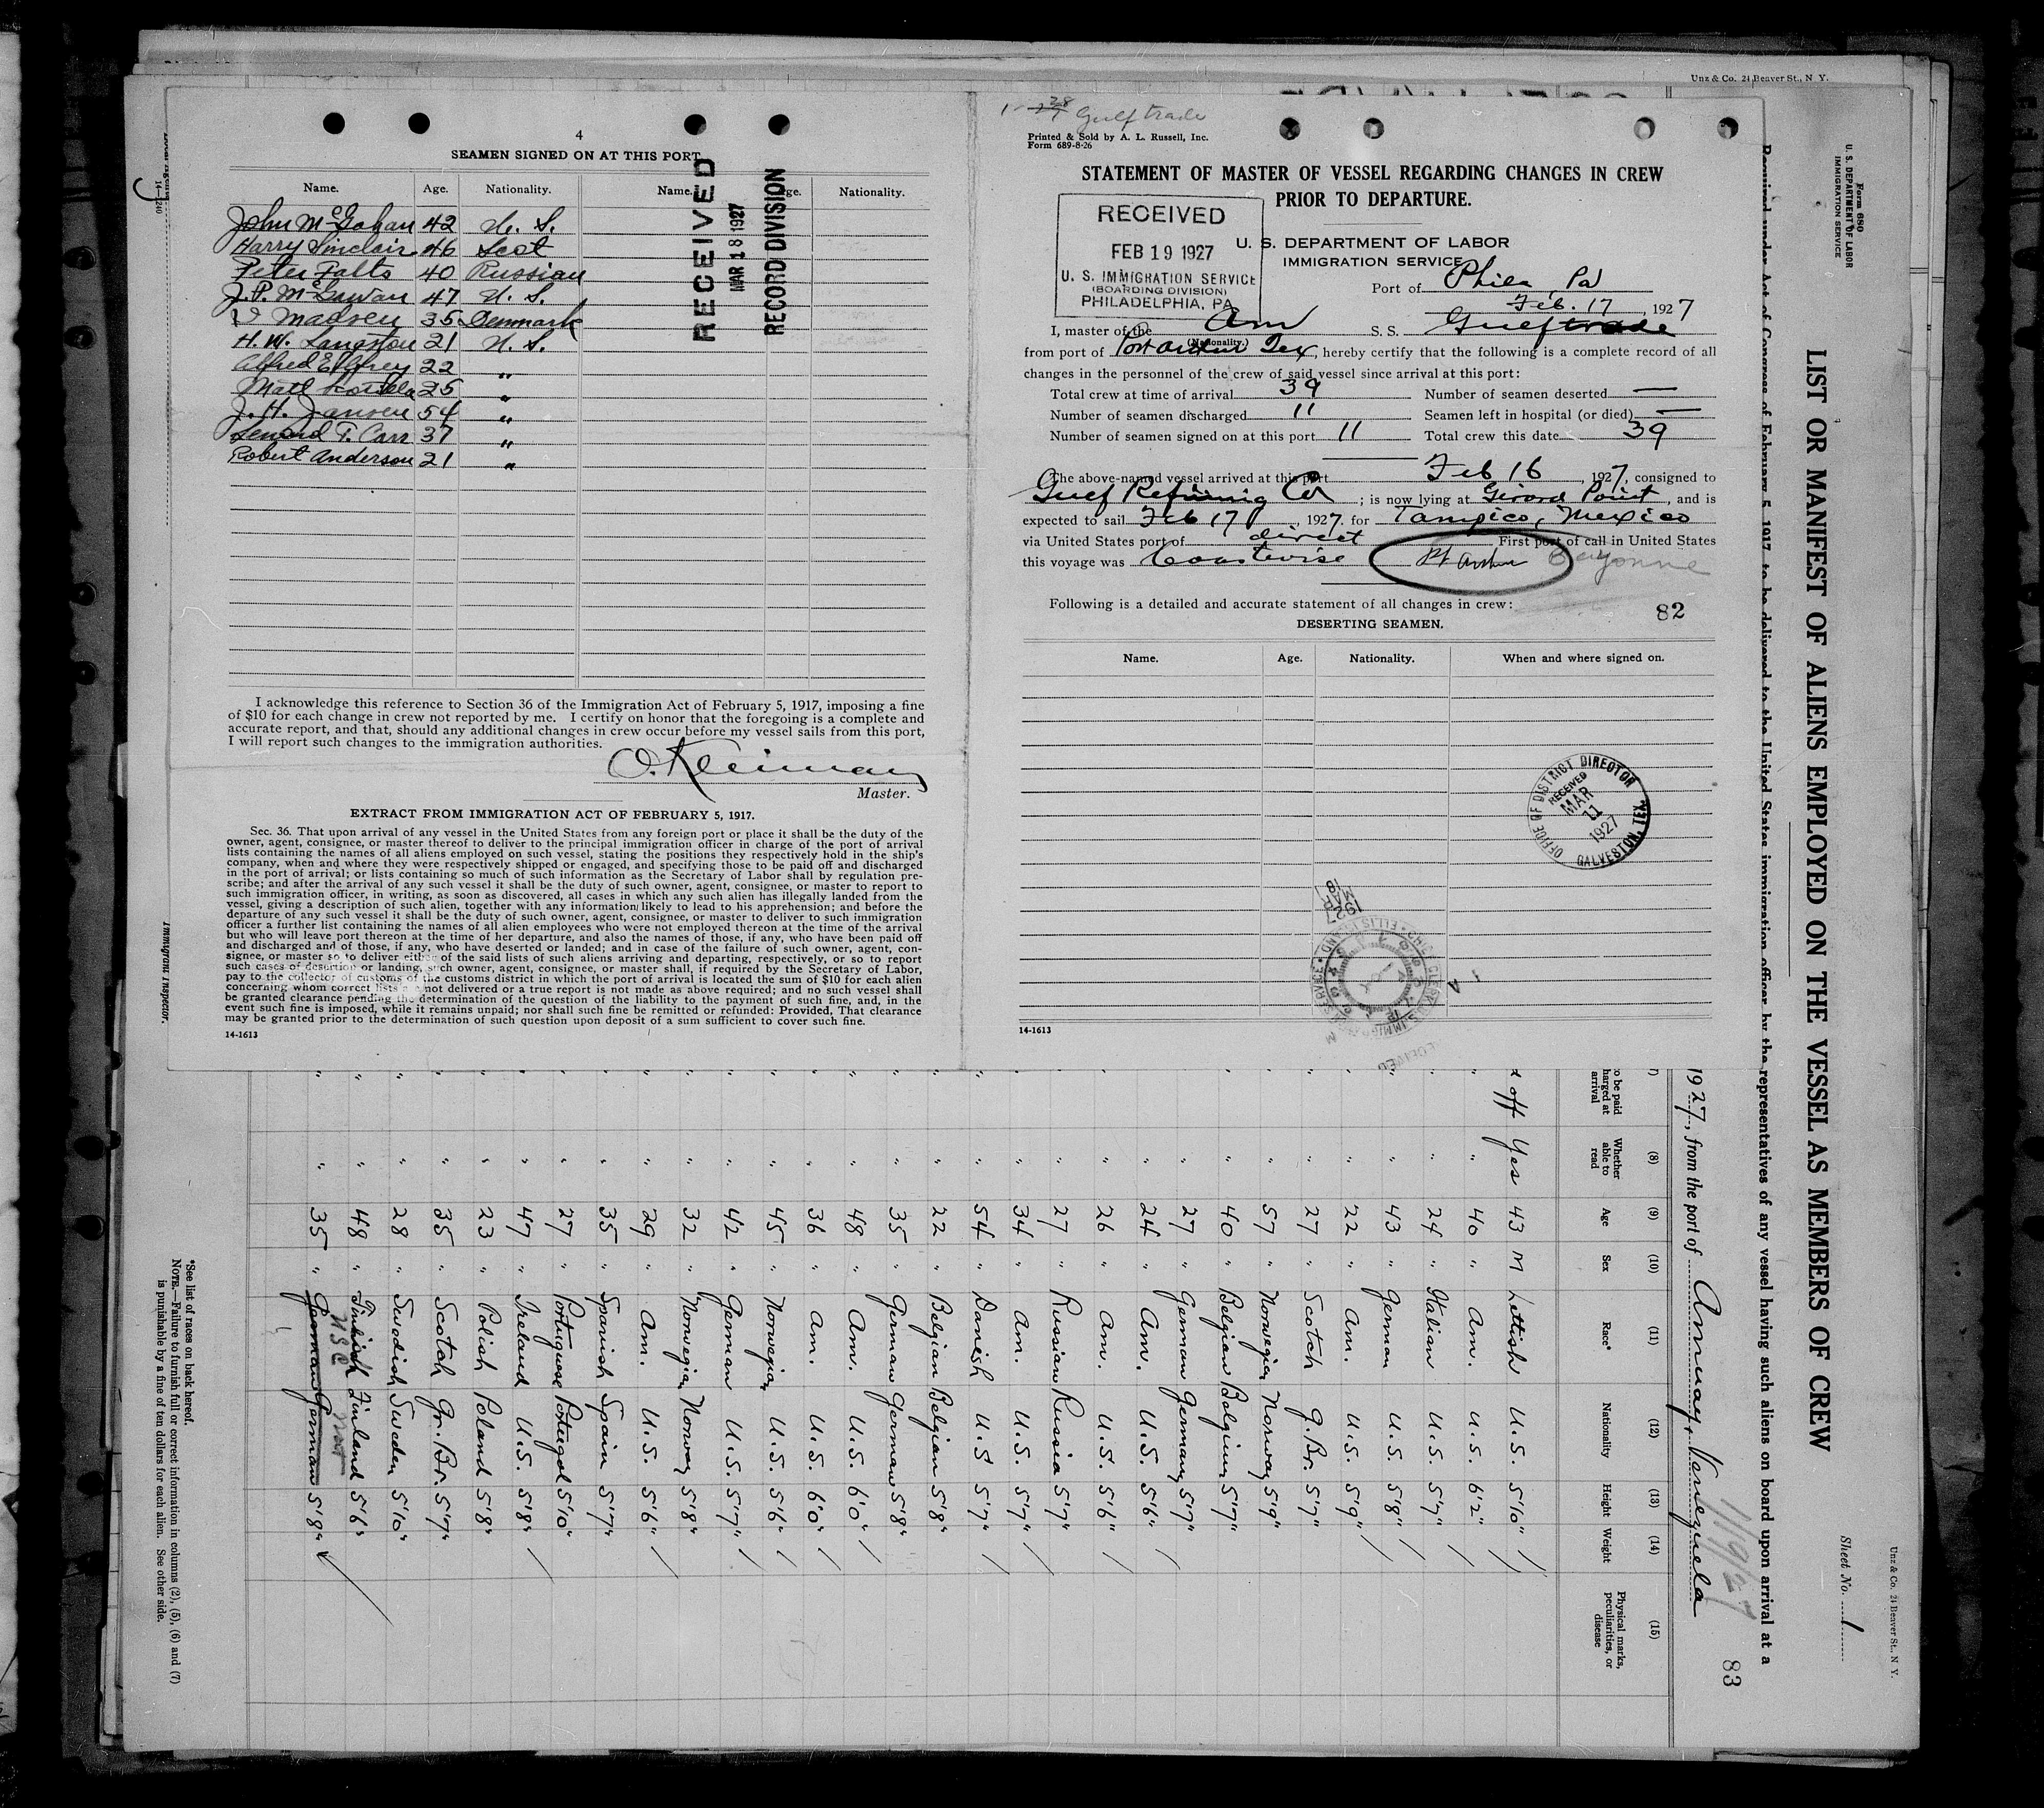 4
SEAMEN SIGNED ON AT THIS PORT
Name. Age. Nationality. Name. Age. Nationality.
John McGahan 42 U. S.
Harry Sinclair 46 Scot
Peter Palts 40 Russian
J. P. McGowan 47 U. S.
V Madsen 35 Denmark
H. W. Langston 21 U. S.
Alfred E. Grey 22 "
Matt 25 "
J. H. Jansen 54 "
Lenard T. Carr 37 "
Robert Anderson 21 "
RECEIVED
MAR 18 1927
RECORD DIVISION
I acknowledge this reference to Section 36 of the Immigration Act of February 5, 1917, imposing a fine
of $10 for each change in crew not reported by me. I certify on honor that the foregoing is a complete and
accurate report, and that, should any additional changes in crew occur before my vessel sails from this port,
I will report such changes to the immigration authorities.
O. Kleiman
Master.
EXTRACT FROM IMMIGRATION ACT OF FEBRUARY 5, 1917.
Sec. 36. That upon arrival of any vessel in the United States from any foreign port or place it shall be the duty of the
owner, agent, consignee, or master thereof to deliver to the principal immigration officer in charge of the port of arrival
lists containing the names of all aliens employed on such vessel, stating the positions they respectively hold in the ship's
company, when and where they were respectively shipped or engaged, and specifying those to be paid off and discharged
in the port of arrival; or lists containing so much of such information as the Secretary of Labor shall by regulation pre-
scribe; and after the arrival of any such vessel it shall be the duty of such owner, agent, consignee, or master to report to
such immigration officer, in writing, as soon as discovered, all cases in which any such alien has illegally landed from the
vessel, giving a description of such alien, together with any information likely to lead to his apprehension; and before the
departure of any such vessel it shall be the duty of such owner, agent, consignee, or master to deliver to such immigration
officer a further list containing the names of all alien employees who were not employed thereon at the time of the arrival
but who will leave port thereon at the time of her departure, and also the names of those, if any, who have been paid off
and discharged and of those, if any, who have deserted or landed; and in case of the failure of such owner, agent, con-
signee, or master so to deliver either of the said lists of such aliens arriving and departing, respectively, or so to report
such cases of desertion or landing, such owner, agent, consignee, or master shall, if required by the Secretary of Labor,
pay to the collector of customs of the customs district in which the port of arrival is located the sum of $10 for each alien
concerning whom correct lists are not delivered or a true report is not made as above required; and no such vessel shall
be granted clearance pending the determination of the question of the liability to the payment of such fine, and, in the
event such fine is imposed, while it remains unpaid; nor shall such fine be remitted or refunded: Provided, That clearance
may be granted prior to the determination of such question upon deposit of a sum sufficient to cover such fine.
14-1613
Immigrant Inspector.
14-1240
Gulftrade
Printed & Sold by A. L. Russell, Inc.
Form 689-8-26
STATEMENT OF MASTER OF VESSEL REGARDING CHANGES IN CREW
PRIOR TO DEPARTURE.
RECEIVED
FEB 19 1927
U. S. IMMIGRATION SERVICE
(BOARDING DIVISION)
PHILADELPHIA, PA.
U. S. DEPARTMENT OF LABOR
IMMIGRATION SERVICE
Port of Phila, Pa
Feb. 17, 1927
I, master of the Am S. S. Gulftrade
(Nationality.)
from port of Port Arthur Tex, hereby certify that the following is a complete record of all
changes in the personnel of the crew of said vessel since arrival at this port:
Total crew at time of arrival 39 Number of seamen deserted —
Number of seamen discharged 11 Seamen left in hospital (or died) —
Number of seamen signed on at this port 11 Total crew this date 39
The above-named vessel arrived at this port Feb 16, 1927, consigned to
Gulf Refining Co; is now lying at Girard Point, and is
expected to sail Feb 17, 1927, for Tampico, Mexico
via United States port of direct First port of call in United States
this voyage was Coastwise Pt Arthur Bayonne
Following is a detailed and accurate statement of all changes in crew:
82
DESERTING SEAMEN.
Name. Age. Nationality. When and where signed on.
OFFICE OF DISTRICT DIRECTOR
RECEIVED
MAR 11 1927
GALVESTON, TEX.
MAR 18 1927
14-1613
Unz & Co. 24 Beaver St., N. Y.
Form 680
U. S. DEPARTMENT OF LABOR
IMMIGRATION SERVICE
LIST OR MANIFEST OF ALIENS EMPLOYED ON THE VESSEL AS MEMBERS OF CREW
Sheet No. 1
Unz & Co. 24 Beaver St., N. Y.
Required under Act of Congress of February 5, 1917, to be delivered to the United States immigration officer by the representatives of any vessel having such aliens on board upon arrival at a
1927, from the port of Amuay, Venezuela
11/9/27
83
(8) (9) (10) (11) (12) (13) (14) (15)
Whether able to read Age Sex Race* Nationality Height Weight Physical marks, peculiarities, or disease
off Yes 43 M Lettish U.S. 5'10"
" " 40 " Am. U.S. 6'2"
" 24 " Italian U.S. 5'7"
" " 43 " German U.S. 5'8"
" 22 " Am. U.S. 5'9"
" 27 " Scotch G.Br. 5'7"
" 57 " Norwegian Norway 5'9"
" 40 " Belgian Belgium 5'7"
" 27 " German Germany 5'7"
" 24 " Am. U.S. 5'6"
" 26 " Am. U.S. 5'6"
" 27 " Russian Russia 5'7"
" 34 " Am. U.S. 5'7"
" 54 " Danish U.S 5'7"
" 22 " Belgian Belgian 5'8"
" 35 " German German 5'8"
" 48 " Am. U.S. 6'0"
" 36 " Am. U.S. 6'0"
" 45 " Norwegian U.S. 5'6"
" 42 " German U.S. 5'7"
" 32 " Norwegian Norway 5'8"
" 29 " Am. U.S. 5'6"
" 35 " Spanish Spain 5'7"
" 27 " Portuguese Portugal 5'10"
" 47 " Ireland U.S. 5'8"
" 23 " Polish Poland 5'8"
" 35 " Scotch Gr. Br. 5'7"
" 28 " Swedish Sweden 5'10"
" 48 " Finland 5'6"
U S C
" 35 " German German 5'8"
*See list of races on back hereof.
NOTE.—Failure to furnish full or correct information in columns (2), (5), (6) and (7)
is punishable by a fine of ten dollars for each alien. See other side.